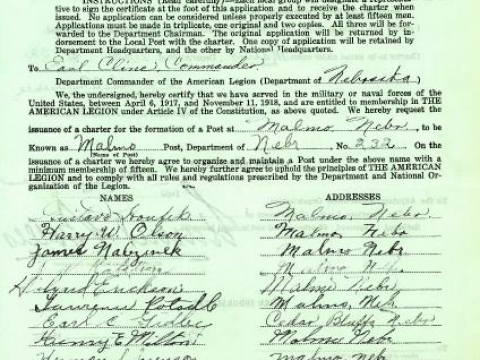 INSTRUCTIONS (Read carefully)—Each local group will designate a representa-
tive to sign the certificate at the foot of this application and to receive the charter when
issued. No application can be considered unless properly executed by at least fifteen men.
Applications must be made in triplicate, one original and two copies. All three will be for-
warded to the Department Chairman. The original application will be returned by in-
dorsement to the Local Post with the charter. One copy of application will be retained by
Department Headquarters, and the other by National Headquarters.
To Earl Cline, Commander
Department Commander of the American Legion (Department of Nebraska)
We, the undersigned, hereby certify that we have served in the military or naval forces of the
United States, between April 6, 1917, and November 11, 1918, and are entitled to membership in THE
AMERICAN LEGION under Article IV of the Constitution, as above quoted. We hereby request the
issuance of a charter for the formation of a Post at Malmo, Nebr, to be
Known as Malmo Post, Department of Nebr No. 232. On the
(Name of Post)
issuance of a charter we hereby agree to organize and maintain a Post under the above name with a
minimum membership of fifteen. We hereby further agree to uphold the principles of THE AMERICAN
LEGION and to comply with all rules and regulations prescribed by the Department and National Or-
ganization of the Legion.
NAMES ADDRESSES
Malmo, Nebr.
Harry W. Olson Malmo Nebr
James Malmo Nebr
Malmo
Erickson Malmo Nebr
Lawrence Malmo, Nebr
Earl C. Cedar Bluffs Nebr
Henry E. Malmo Nebr
Herman Malmo Nebr